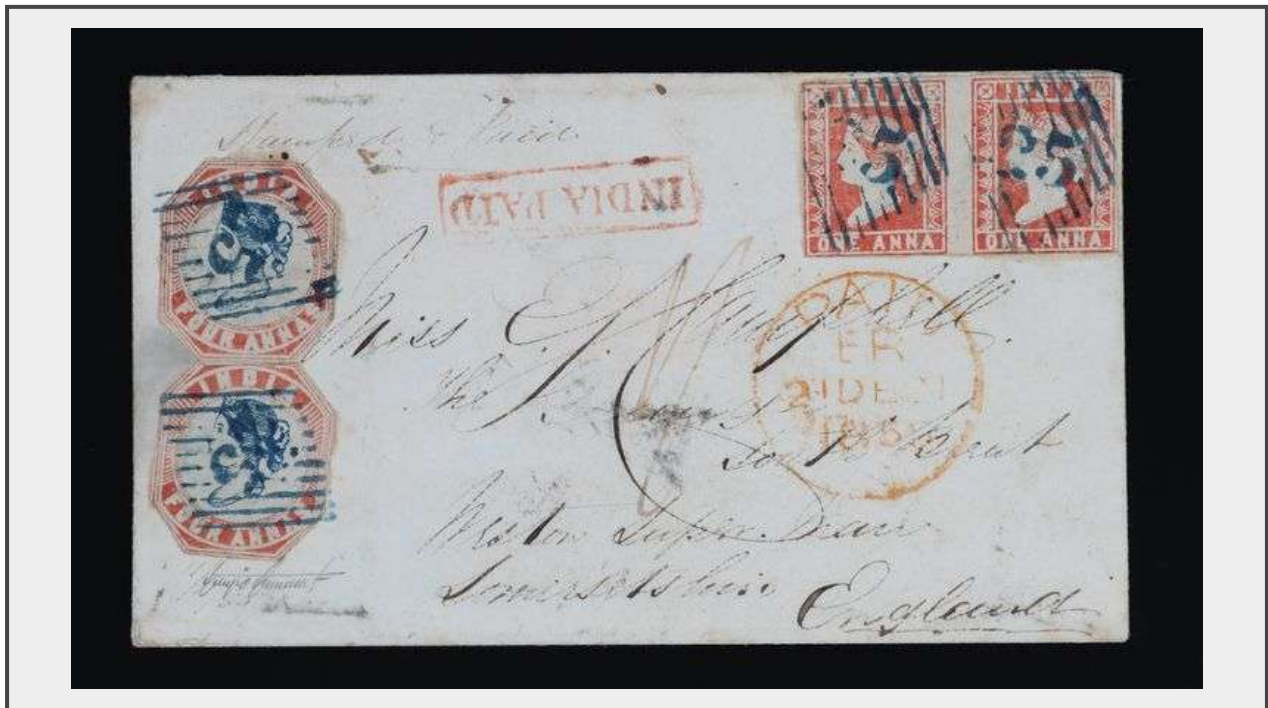 Stamped & Paid
INDIA PAID
ONE ANNA
ONE ANNA
INDIA
FOUR ANNAS
INDIA
FOUR ANNAS
PAID
ER
21 DE 21
Miss E. Campbell
The
South
Weston Super Mare
Somersetshire
England